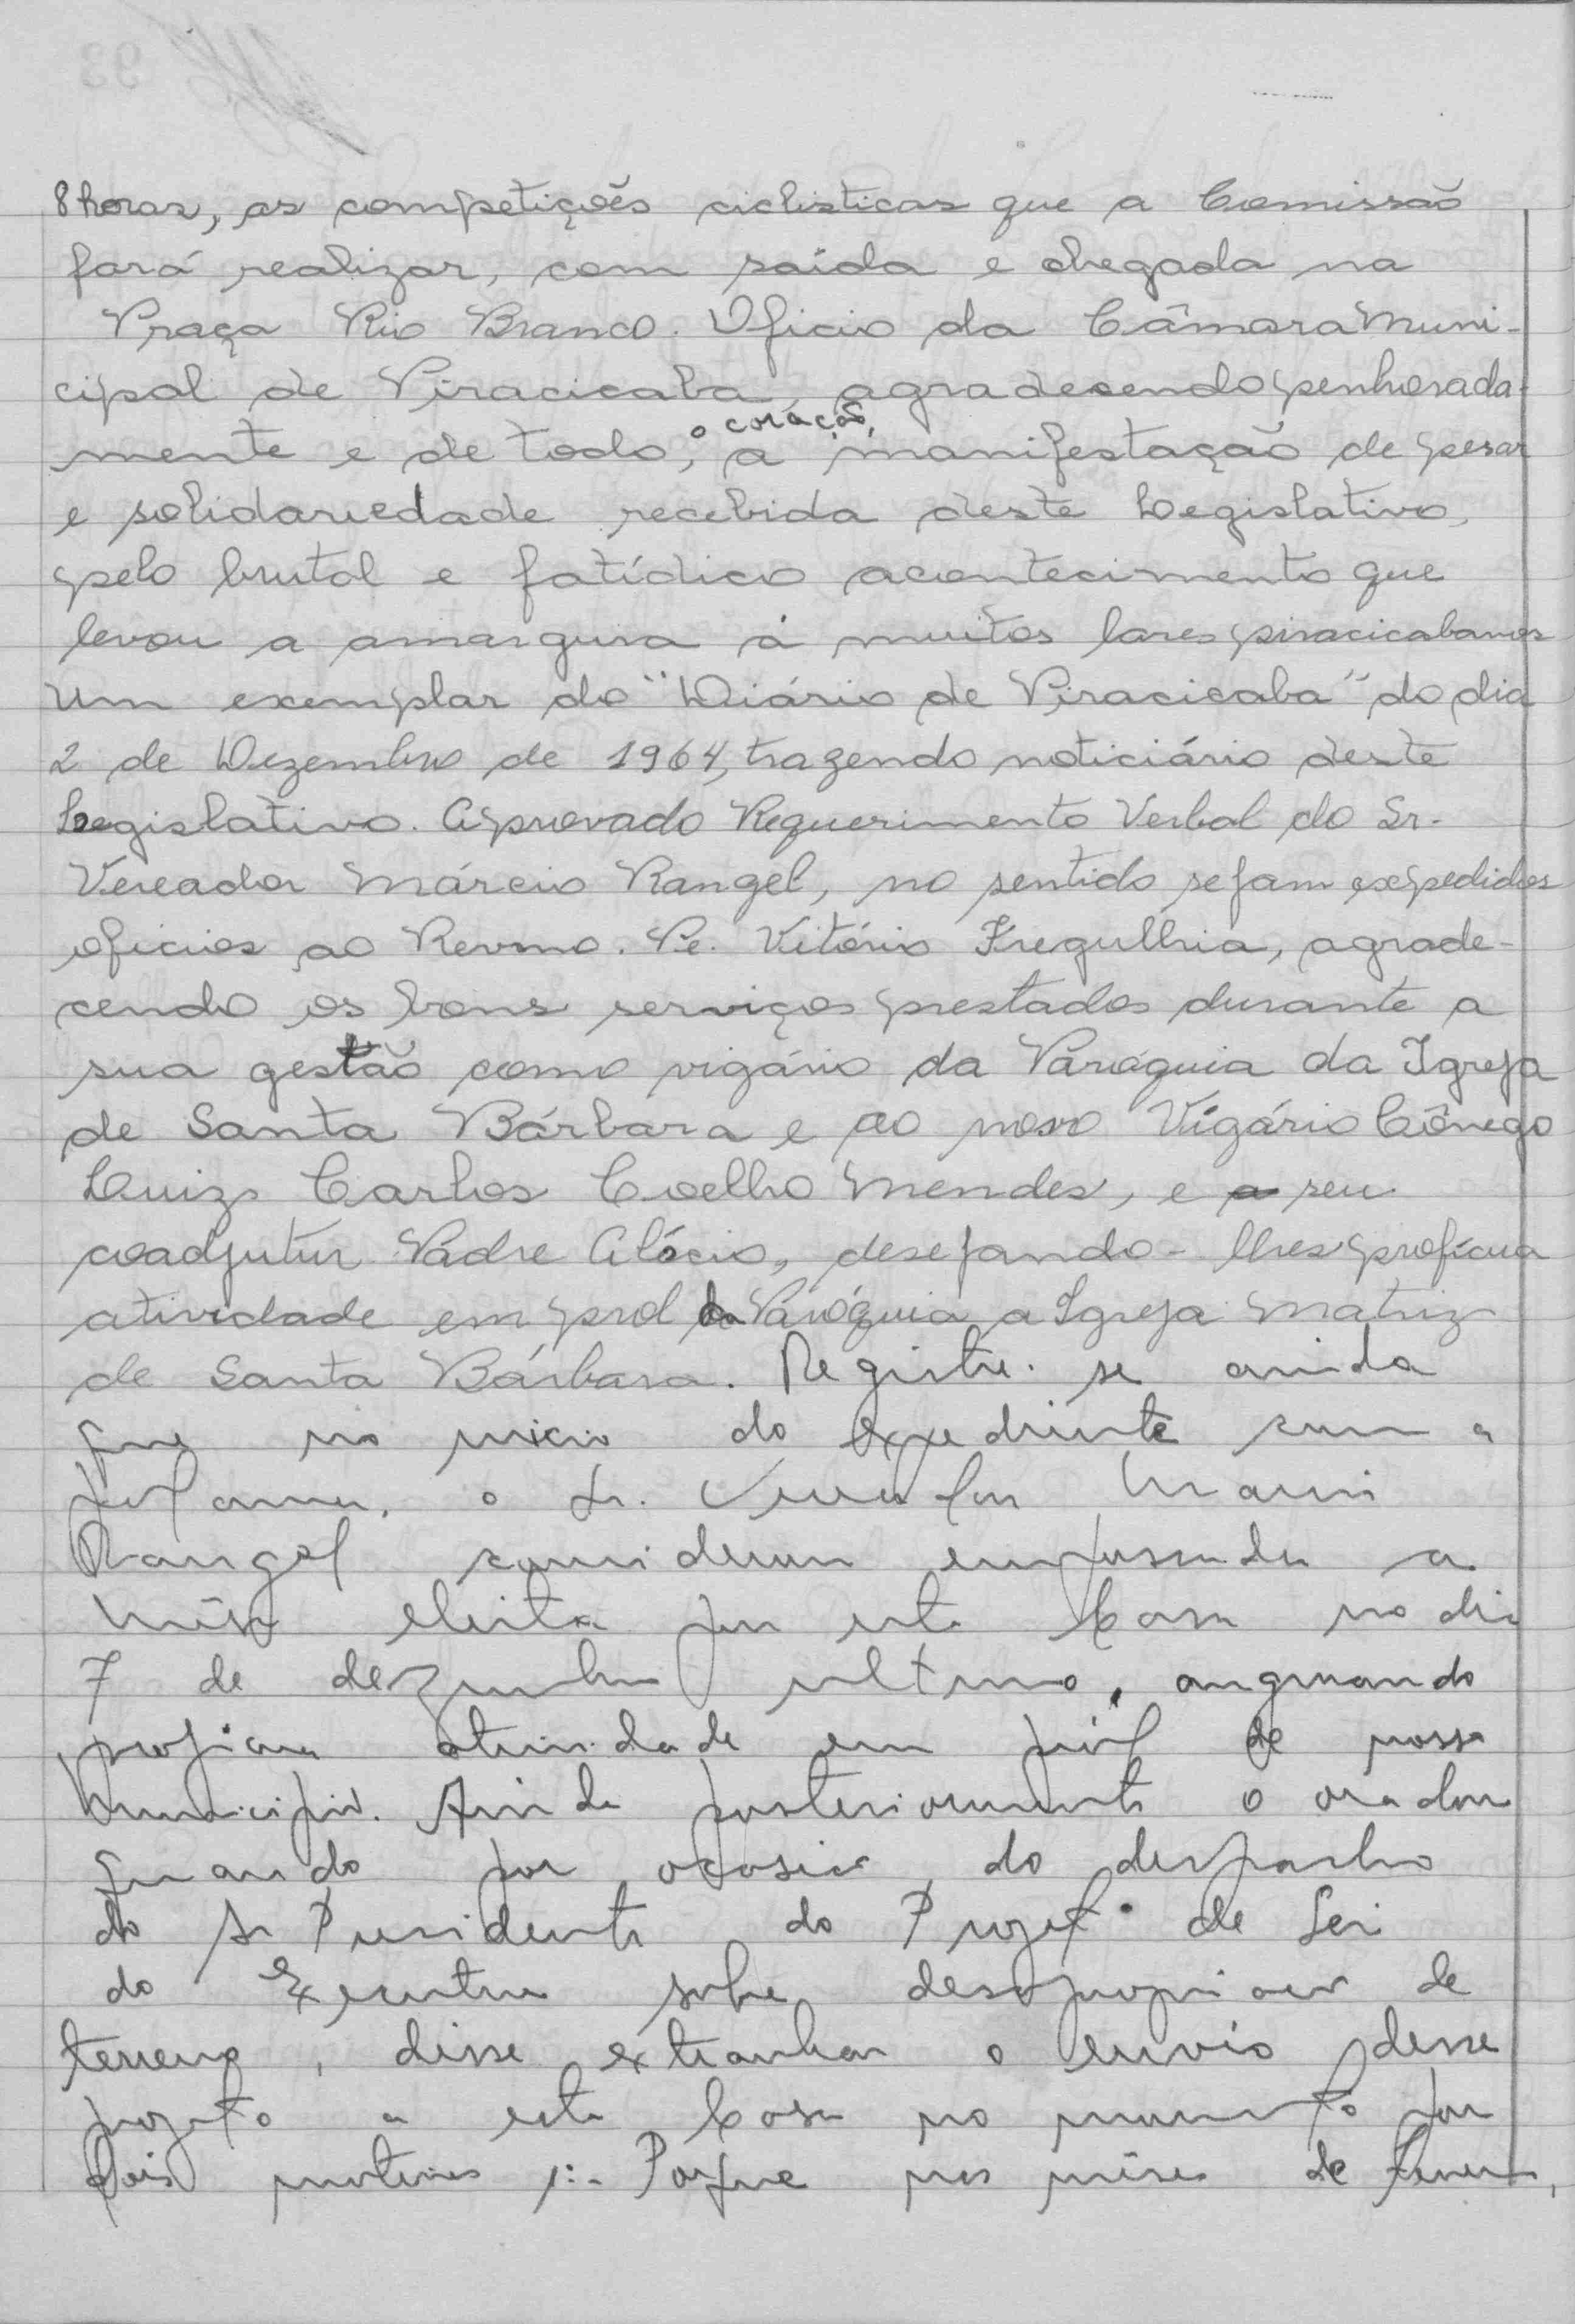 8 horas, as competições ciclisticas que a Comissão
fará realizar, com saída e chegada na
Praça Rio Branco. Oficio da Câmara Muni-
cipal de Piracicaba, agradecendo penhorada-
mente e de todo, o coração, a manifestação de pesar
e solidariedade recebida deste Legislativo,
pelo brutal e fatídico acontecimento que
levou a amargura á muitos lares piracicabanos
Um exemplar do "Diário de Piracicaba" do dia
2 de Dezembro de 1964, trazendo noticiário deste
Legislativo. Aprovado Requerimento Verbal do Sr.
Vereador Márcio Rangel, no sentido sejam expedidos
oficios ao Revmo. Pe. Vitório Fregulhia, agrade-
cendo os bons serviços prestados durante a
sua gestão como vigário da Paróquia da Igreja
de Santa Bárbara e ao novo Vigário Cônego
Luiz Carlos Coelho Mendes, e a seu
coadjutor Padre Alócio, desejando-lhes profícua
atividade em prol da Paróquia a Igreja Matriz
de Santa Bárbara. Registre-se ainda
que no inicio do expediente com a
palavra, o Sr. Vereador Marcio
Rangel considerou empossada a
Mêsa eleita por esta Casa no dia
7 de dezembro ultimo, augurando
proficua atividade em prol de nosso
Municipio. Ainda posteriormente o orador
quando por ocasião do despacho
do Sr Presidente do Projeto de Lei
do Executivo sobre desapropriação de
terreno, disse extranhar o envio desse
projeto a esta Casa no momento por
dois motivos 1:- Porque nos mêses de